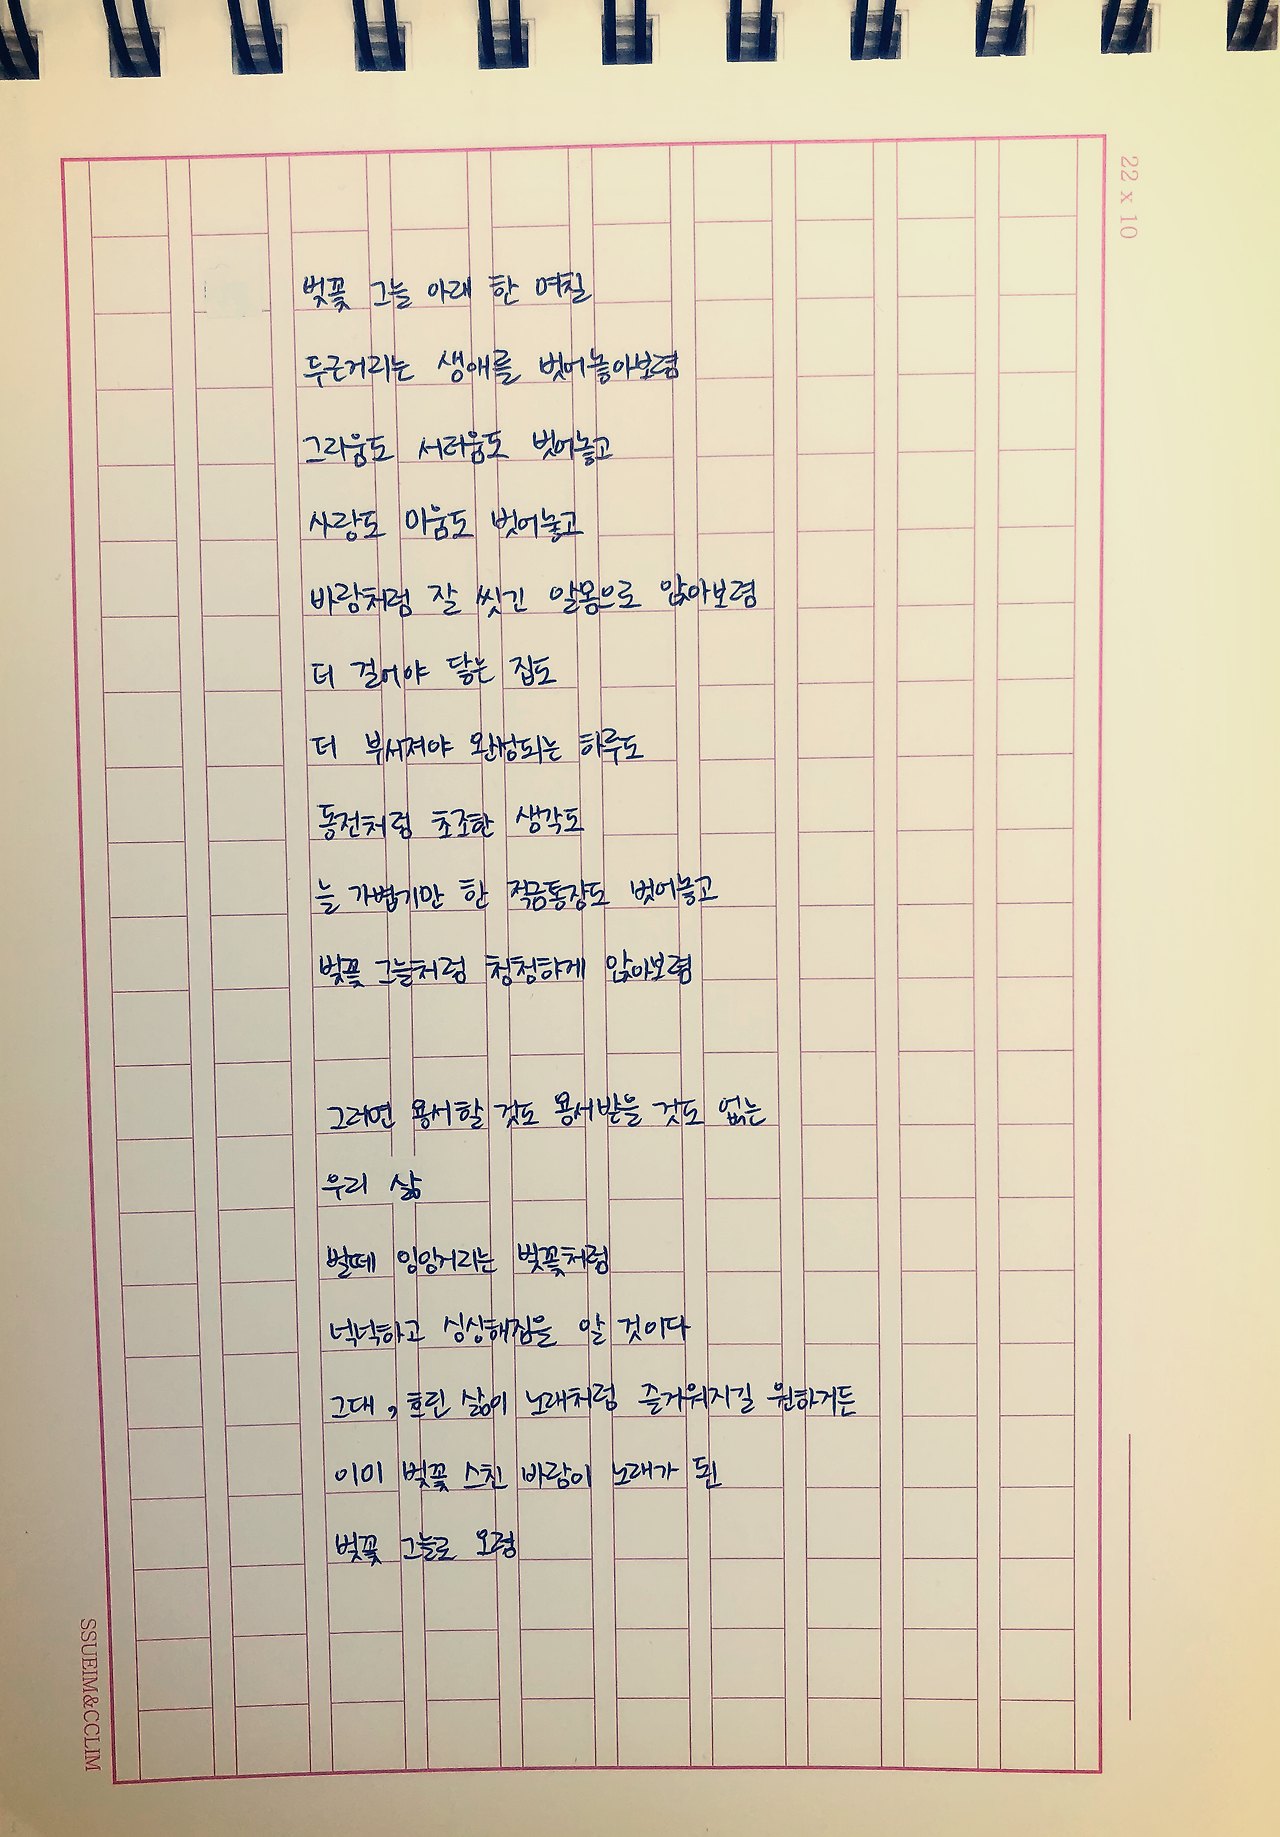 22 x 10
벚꽃 그늘 아래 한 며칠
두근거리는 생애를 벗어놓아보렴
그리움도 서러움도 벗어놓고
사랑도 미움도 벗어놓고
바람처럼 잘 씻긴 알몸으로 앉아보렴
더 걸어야 닿는 집도
더 부서져야 완성되는 하루도
동전처럼 초조한 생각도
늘 가볍기만 한 적금통장도 벗어놓고
벚꽃 그늘처럼 청청하게 앉아보렴
그러면 용서할 것도 용서받을 것도 없는
우리 삶
벌떼 잉잉거리는 벚꽃처럼
넉넉하고 싱싱해짐을 알 것이다
그대, 흐린 삶이 노래처럼 즐거워지길 원하거든
이미 벚꽃 스친 바람이 노래가 된
벚꽃 그늘로 오렴
SSUEIM&CCLIM